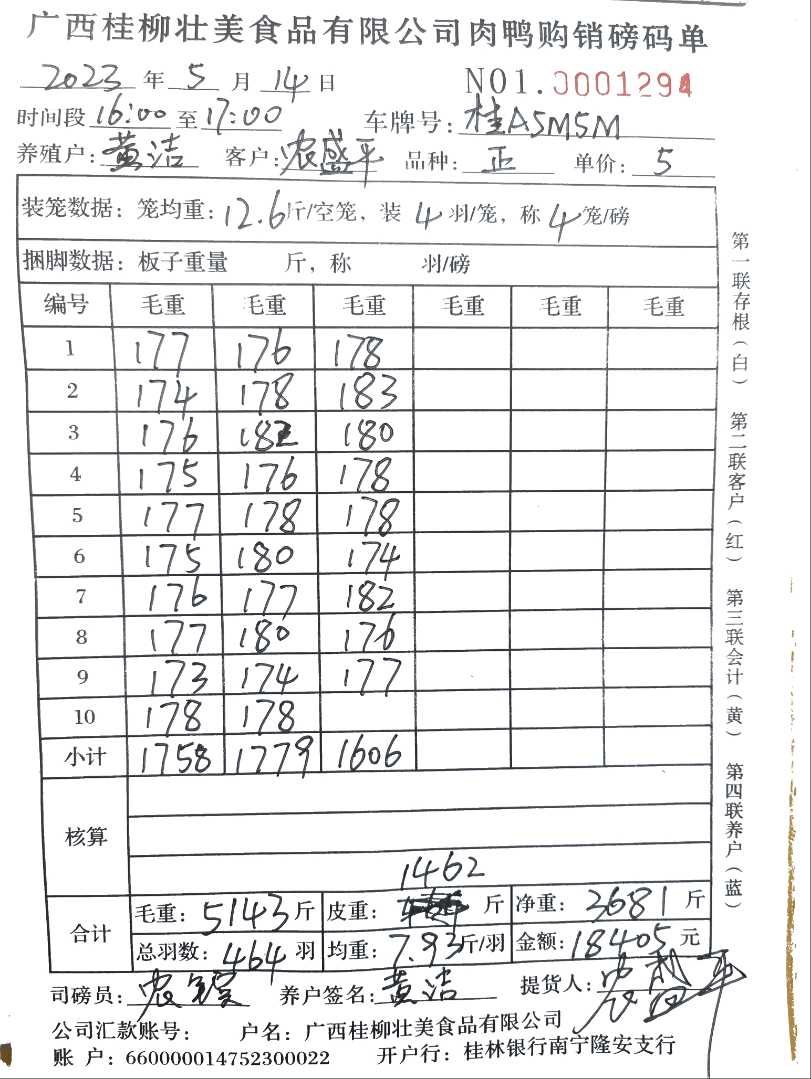 广西桂柳壮美食品有限公司肉鸭购销磅码单
2023 年 5 月 14 日 NO1.0001294
时间段 16:00 至 17:00 车牌号: 桂A5M5M
养殖户: 黄洁 客户: 农盛平 品种: 正 单价: 5
装笼数据: 笼均重: 12.6 斤/空笼, 装 4 羽/笼, 称 4 笼/磅
捆脚数据: 板子重量 斤, 称 羽/磅
编号 毛重 毛重 毛重 毛重 毛重 毛重
1 177 176 178
2 174 178 183
3 176 182 180
4 175 176 178
5 177 178 178
6 175 180 174
7 176 177 182
8 177 180 176
9 173 174 177
10 178 178
小计 1758 1779 1606
核算
1462
合计 毛重: 5143 斤 皮重: 斤 净重: 3681 斤
总羽数: 464 羽 均重: 7.93 斤/羽 金额: 18405 元
司磅员: 农 养户签名: 黄洁 提货人: 农盛平
公司汇款账号: 户名: 广西桂柳壮美食品有限公司
账 户: 660000014752300022 开户行: 桂林银行南宁隆安支行
第一联存根(白) 第二联客户(红) 第三联会计(黄) 第四联养户(蓝)